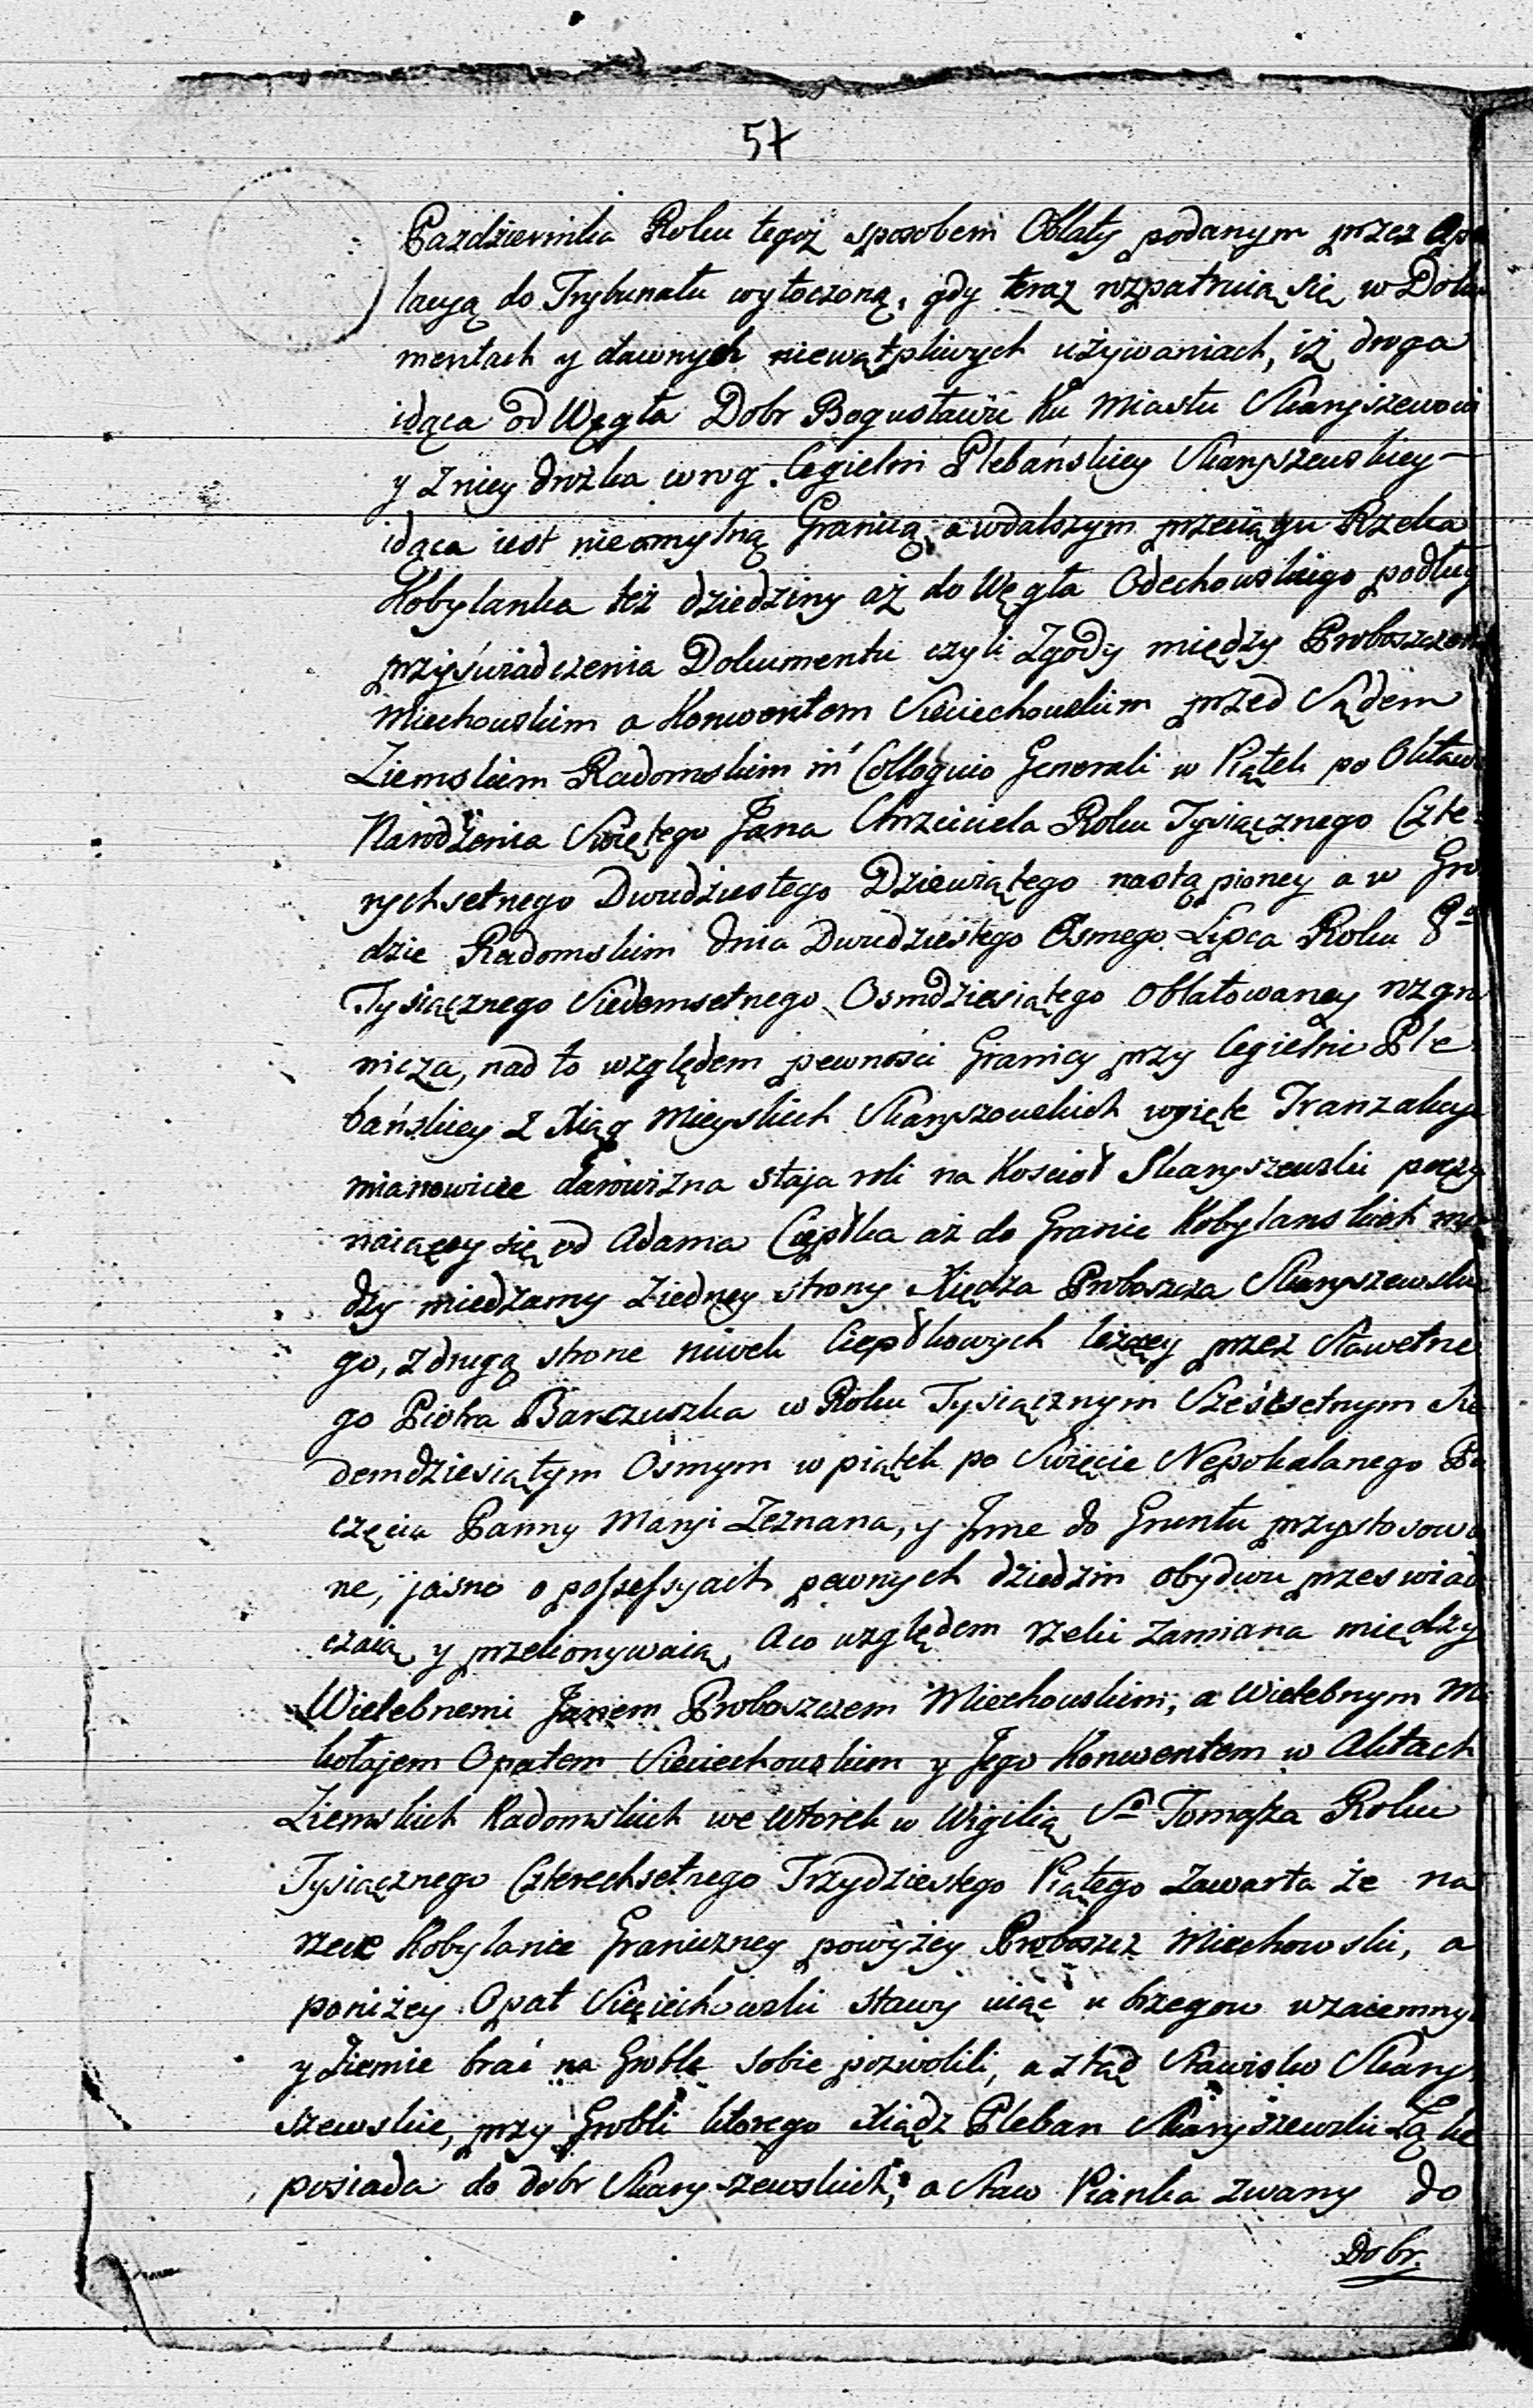 57
Pazdziernika Roku tegoż sposobem Oblaty podanym przez Ape
lacyą do Trybunału wytoczoną, gdy teraz rozpatruią się w Doku
mentach y dawnych niewątpliwych używaniach, iż droga
idąca od Węgła Dobr Bogusławic Ku Miastu Skaryszewowi
y z niey drożka w rog Cegielni Plebańskiey Skaryszewskiey –
idąca iest nieomylną Granicą, a wdalszym przeciągu Rzeka
Kobylanka też dziedziny aż do Węgła Odechowskiego podług
przyświadczenia Dokumentu czyli Zgody między Proboszczem
Miechowskim a Konwentem Sieciechowskim przed Sądem
Ziemskiem Radomskim in Colloquio Generali w Piątek po Oktawie
Narodzenia Swiętego Jana Chrzciciela Roku Tysiącznego Czte-
rychsetnego Dwudziestego Dziewiątego nastąpioney a w Gro
dzie Radomskim dnia Dwudziestego Osmego Lipca Roku
Tysiącznego Siedemsetnego Osmdziesiątego Oblatowaney rozgra
nicza, nad to względem pewności Granicy przy Cegielni Ple
bańskiey z Xiąg Mieyskich Skaryszewskich wyięte Tranzakcye
mianowicie darowizna staja roli na Kościoł Skaryszewski poczy
naiącey się od Adama Ciepłka aż do Granic Kobylanskich mię
dzy miedzamy z iedney strony Xiędza Proboszcza Skaryszewskie
go, z drugą strone niwek Ciepłkowych leżącey przez Sławetne
go Piotra Barczuszka w Roku Tysiącznym Sześćsetnym Sie
demdziesiątym Osmym w piątek po Swięcie Niepokalanego Po
częcia Panny Maryi Zeznana, y Inne do Gruntu przystosowa
ne, jasno o possessyach pewnych dziedzin obydwu przeswiad
czaią y przekonywaią, Aco względem rzeki zamiana między
Wielebnemi Janem Proboszczem Miechowskim, a Wielebnym Mi
kołajem Opatem Sieciechowskim y Jego Konwentem w Aktach
Ziemskich Radomskich we Wtorek w Wigilią Sgo Tomasza Roku
Tysiącznego Czterechsetnego Trzydziestego Piątego zawarta że na
rzece Kobylance Graniczney powyżey Proboszcz Miechowski, a
poniżey Opat Sieciechowski stawy iąć u brzegow wzaiemny
y Ziemie brać na Groble sobie pozwolili, a ztąd Stawisko Skary
szewskie, przy Grobli ktorego Xiądz Pleban Skaryszewski Łąke
posiada do dobr Skaryszewskich, a Staw Pianka zwany do
Dobr.